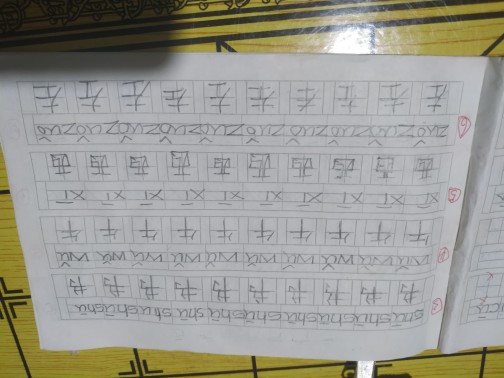 shū shū shū shū shū shū shū shū shū shū
书 书 书 书 书 书 书 书 书 书
wǔ wǔ wǔ wǔ wǔ wǔ wǔ wǔ wǔ wǔ
午 午 午 午 午 午 午 午 午 午
⑤ xī xī xī xī xī xī xī xī xī xī
西 西 西 西 西 西 西 西 西 西
⑥ zuǒ zuǒ zuǒ zuǒ zuǒ zuǒ zuǒ zuǒ zuǒ zuǒ
左 左 左 左 左 左 左 左 左 左